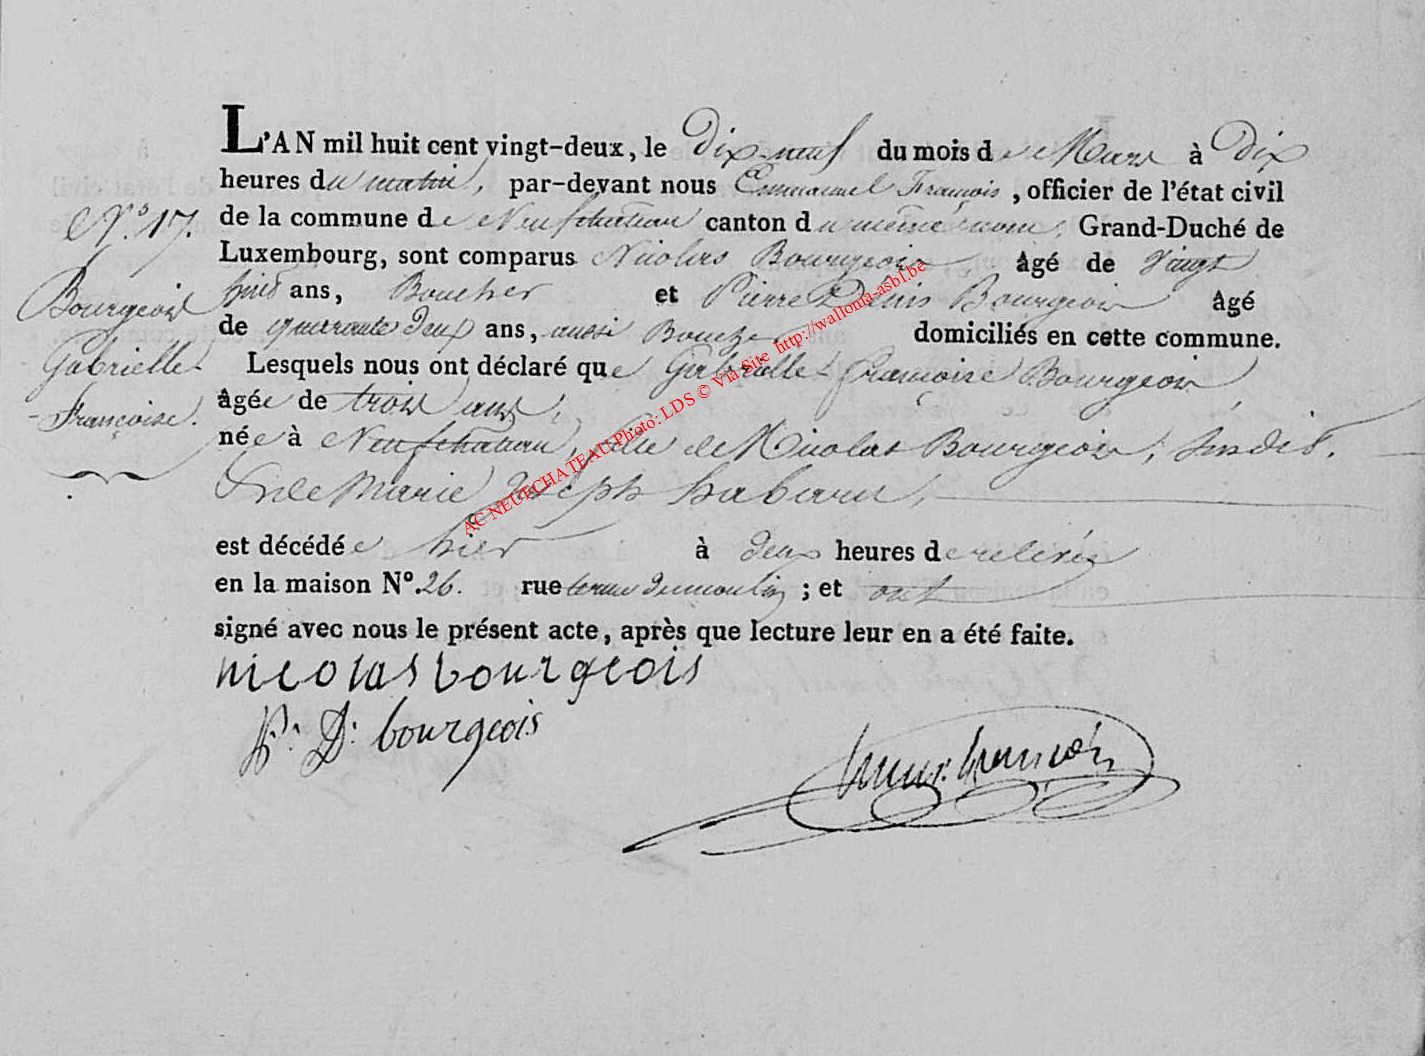 L'AN mil huit cent vingt-deux, le Dix-neuf du mois de Mars à Dix
heures du matin, par-devant nous Emmanuel François, officier de l'état civil
de la commune de Neufchateau canton du même nom, Grand-Duché de
Luxembourg, sont comparus Nicolas Bourgeois âgé de Vingt
huit ans, Boucher et Pierre Denis Bourgeois âgé
de quarante deux ans, aussi Boucher domiciliés en cette commune.
Lesquels nous ont déclaré que Gabrielle françoise Bourgeois,
âgée de trois ans,
née à Neufchateau, fille de Nicolas Bourgeois, susdit.
Et de Marie Joseph habaru,
est décédée hier à deux heures de relevée
en la maison N°. 26. rue terme du moulin ; et ont
signé avec nous le présent acte, après que lecture leur en a été faite.
nicolas bourgeois
P: D: bourgeois
françois
N° 17.
Bourgeois
Gabrielle
-françoise.
AC NEUFCHATEAU Photo: LDS © Via Site http://wallonia-asbl.be